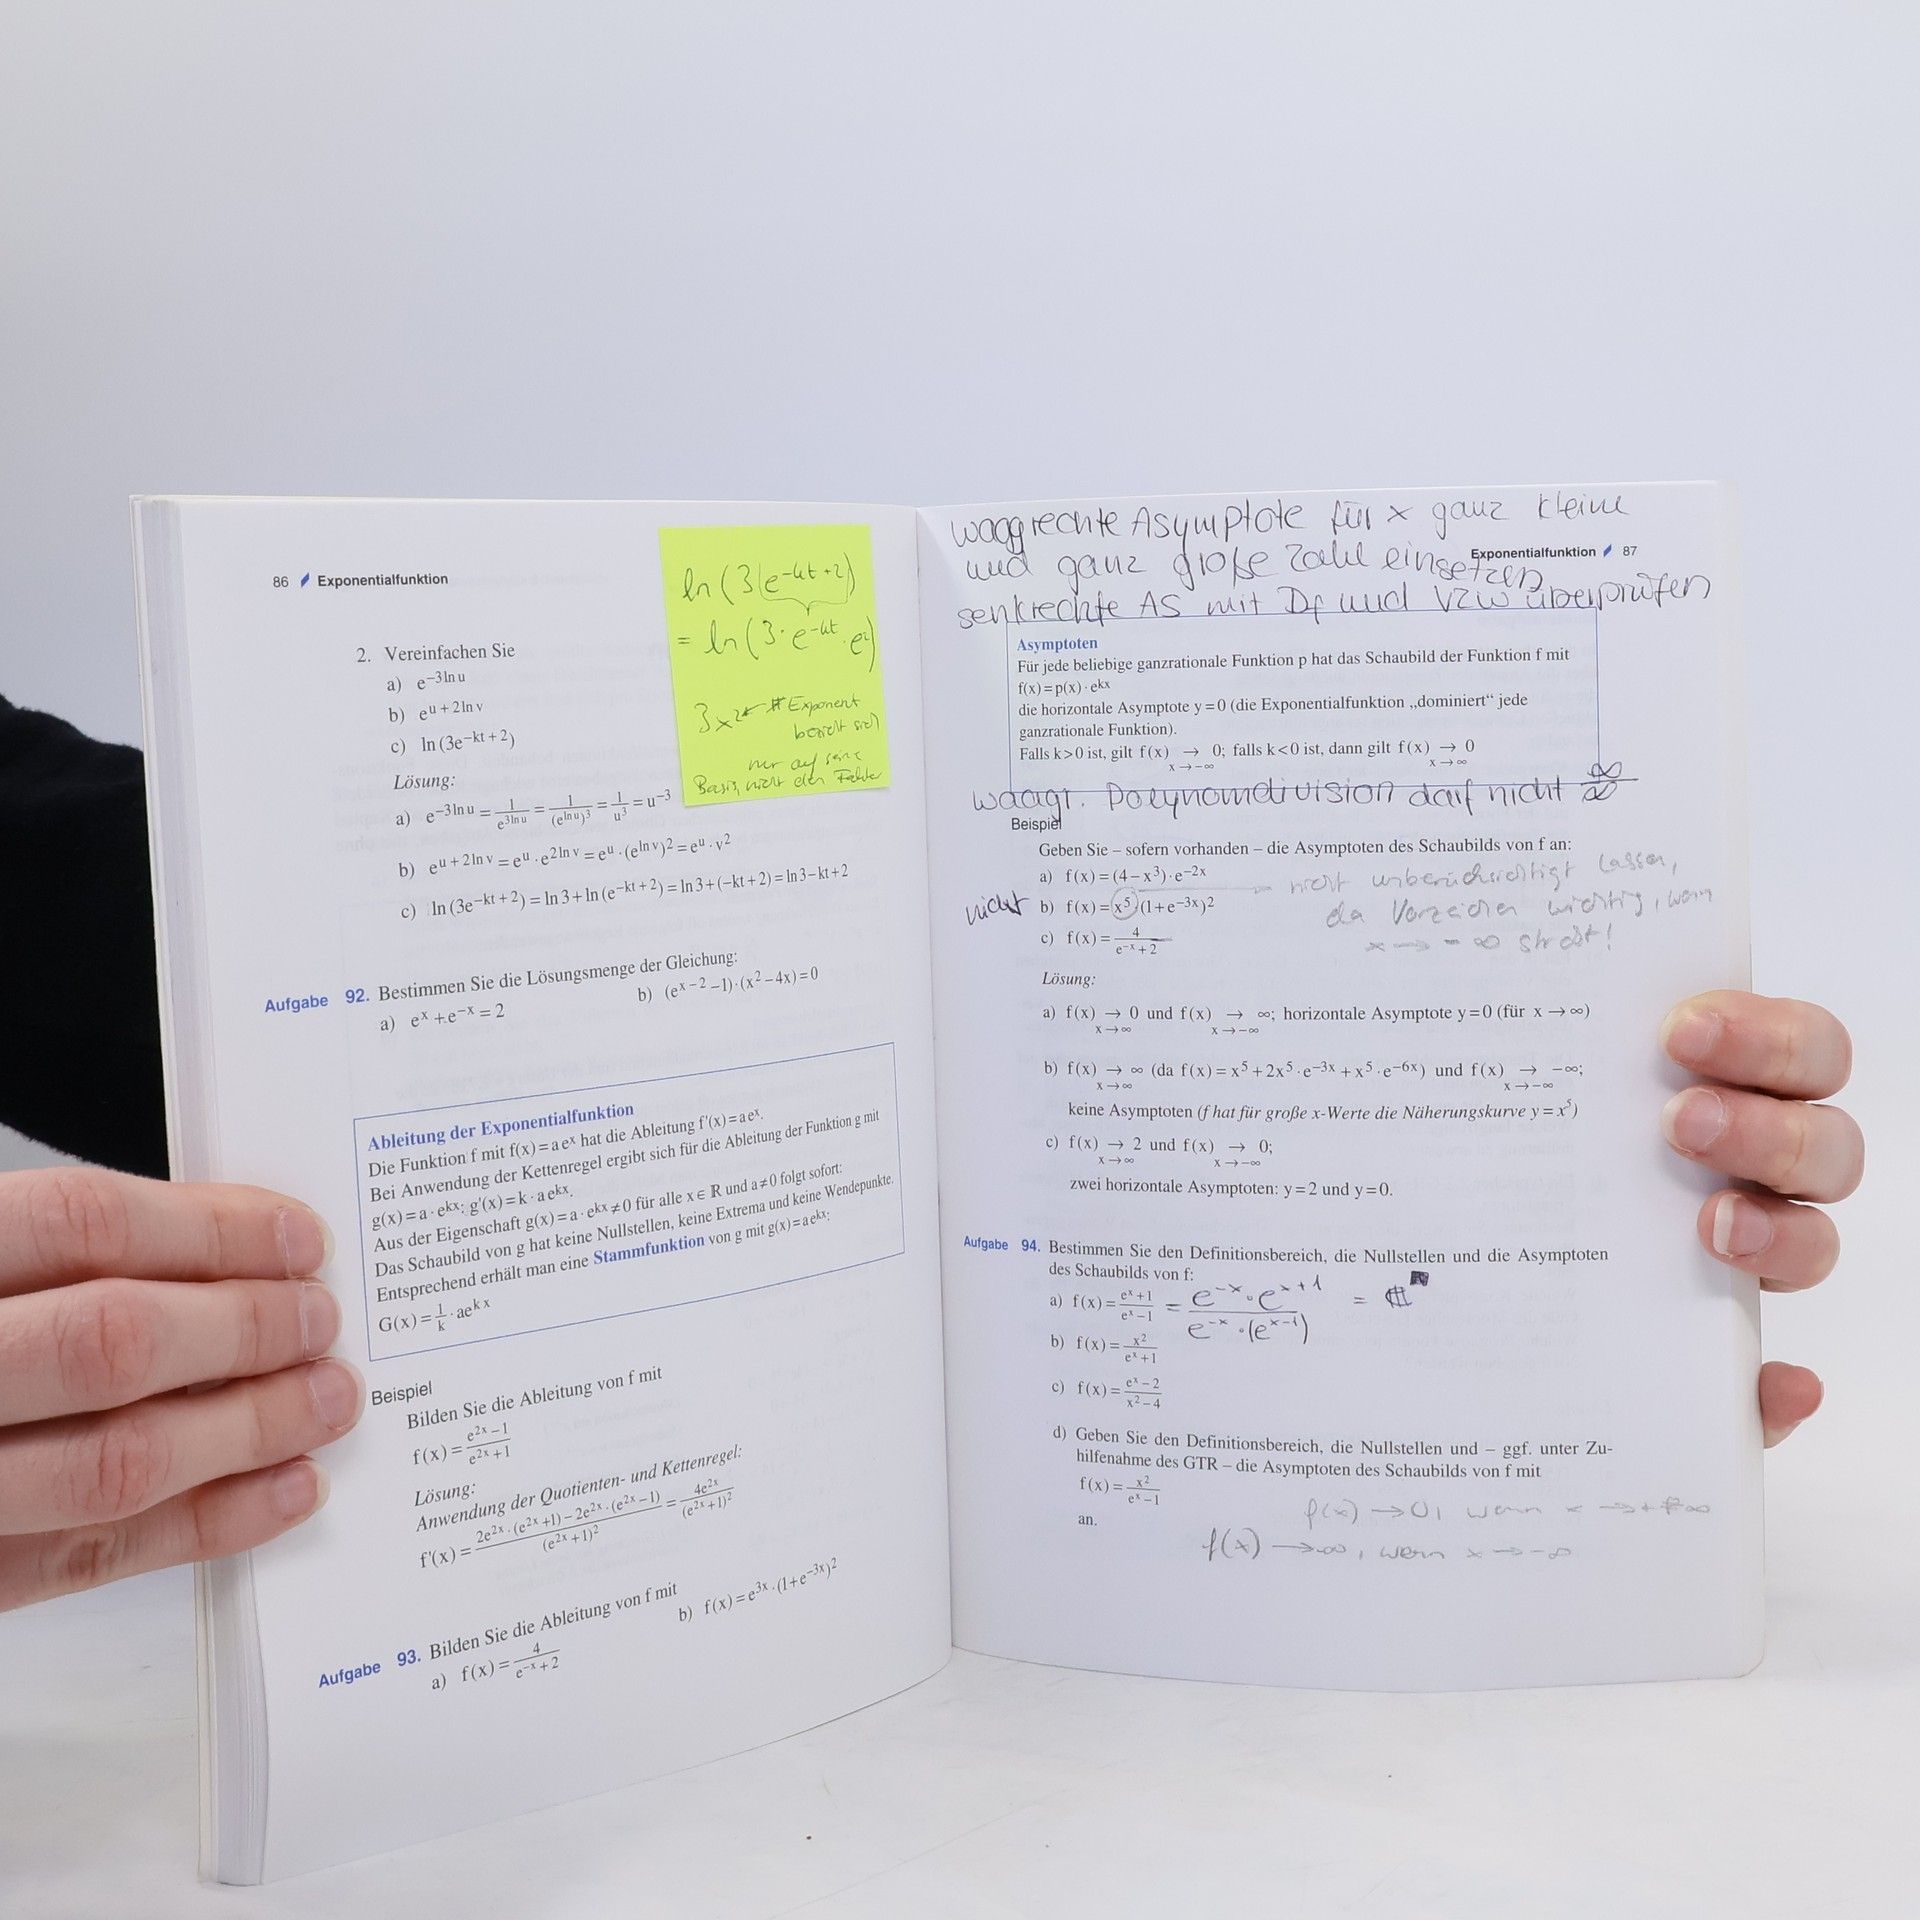 86 Exponentialfunktion
2. Vereinfachen Sie
a) e^{-3 ln u}
b) e^{u + 2 ln v}
c) ln (3e^{-kt + 2})
Lösung:
a) e^{-3 ln u} = 1/e^{3 ln u} = 1/(e^{ln u})^3 = 1/u^3 = u^{-3}
b) e^{u + 2 ln v} = e^u · e^{2 ln v} = e^u · (e^{ln v})^2 = e^u · v^2
c) ln (3e^{-kt + 2}) = ln 3 + ln (e^{-kt + 2}) = ln 3 + (-kt + 2) = ln 3 - kt + 2
ln (3(e^{-kt + 2})
= ln (3 · e^{-kt} · e^2)
3x^2 ← Exponent
bezieht sich
nur auf seine
Basis, nicht den Faktor
Aufgabe 92. Bestimmen Sie die Lösungsmenge der Gleichung:
a) e^x + e^{-x} = 2 b) (e^{x-2} - 1) · (x^2 - 4x) = 0
Ableitung der Exponentialfunktion
Die Funktion f mit f(x) = a e^x hat die Ableitung f'(x) = a e^x.
Bei Anwendung der Kettenregel ergibt sich für die Ableitung der Funktion g mit
g(x) = a · e^{kx}: g'(x) = k · a e^{kx}.
Aus der Eigenschaft g(x) = a · e^{kx} ≠ 0 für alle x ∈ ℝ und a ≠ 0 folgt sofort:
Das Schaubild von g hat keine Nullstellen, keine Extrema und keine Wendepunkte.
Entsprechend erhält man eine Stammfunktion von g mit g(x) = a e^{kx}:
G(x) = 1/k · ae^{k x}
Beispiel
Bilden Sie die Ableitung von f mit
f(x) = (e^{2x} - 1)/(e^{2x} + 1)
Lösung:
Anwendung der Quotienten- und Kettenregel:
f'(x) = (2e^{2x} · (e^{2x} + 1) - 2e^{2x} · (e^{2x} - 1))/(e^{2x} + 1)^2 = 4e^{2x}/(e^{2x} + 1)^2
Aufgabe 93. Bilden Sie die Ableitung von f mit
a) f(x) = 4/(e^{-x} + 2) b) f(x) = e^{3x} · (1 + e^{-3x})^2
waagrechte Asymptote für x ganz kleine
und ganz große Zahl einsetzen
Exponentialfunktion 87
senkrechte AS mit Df und VZW überprüfen
Asymptoten
Für jede beliebige ganzrationale Funktion p hat das Schaubild der Funktion f mit
f(x) = p(x) · e^{kx}
die horizontale Asymptote y = 0 (die Exponentialfunktion „dominiert“ jede
ganzrationale Funktion).
Falls k > 0 ist, gilt f(x) → 0; falls k < 0 ist, dann gilt f(x) → 0
x → -∞ x → ∞
waagr. Polynomdivision darf nicht ∞/∞
Beispiel
Geben Sie – sofern vorhanden – die Asymptoten des Schaubilds von f an:
a) f(x) = (4 - x^3) · e^{-2x}
nicht b) f(x) = x^5 · (1 + e^{-3x})^2
c) f(x) = 4/(e^{-x} + 2)
nicht unberücksichtigt lassen,
da Vorzeichen wichtig, wenn
x → -∞ strebt!
Lösung:
a) f(x) → 0 und f(x) → ∞; horizontale Asymptote y = 0 (für x → ∞)
x → ∞ x → -∞
b) f(x) → ∞ (da f(x) = x^5 + 2x^5 · e^{-3x} + x^5 · e^{-6x}) und f(x) → -∞;
x → ∞ x → -∞
keine Asymptoten (f hat für große x-Werte die Näherungskurve y = x^5)
c) f(x) → 2 und f(x) → 0;
x → ∞ x → -∞
zwei horizontale Asymptoten: y = 2 und y = 0.
Aufgabe 94. Bestimmen Sie den Definitionsbereich, die Nullstellen und die Asymptoten
des Schaubilds von f:
a) f(x) = (e^x + 1)/(e^x - 1) = (e^{-x} · e^{x+1})/(e^{-x} · (e^{x-1})) =
b) f(x) = x^2/(e^x + 1)
c) f(x) = (e^x - 2)/(x^2 - 4)
d) Geben Sie den Definitionsbereich, die Nullstellen und – ggf. unter Zu-
hilfenahme des GTR – die Asymptoten des Schaubilds von f mit
f(x) = x^2/(e^x - 1)
an.
f(x) → 0, wenn x → + ∞
f(x) → -∞, wenn x → -∞